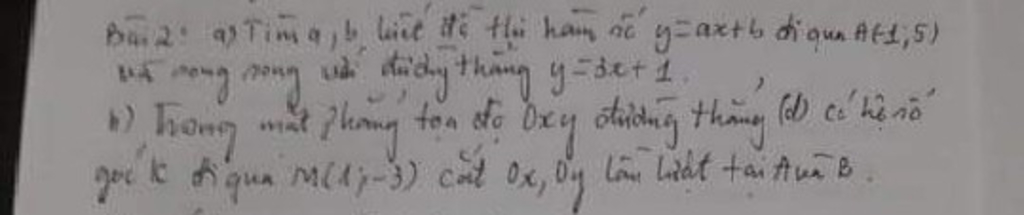 Bài 2: a) Tìm a, b biết đồ thị hàm số y=ax+b đi qua A(-1;5)
và song song với đường thẳng y=3x+1.
b) Trong mặt phẳng tọa độ Oxy đường thẳng (d) có hệ số
góc k đi qua M(1;-3) cắt Ox, Oy lần lượt tại A và B.